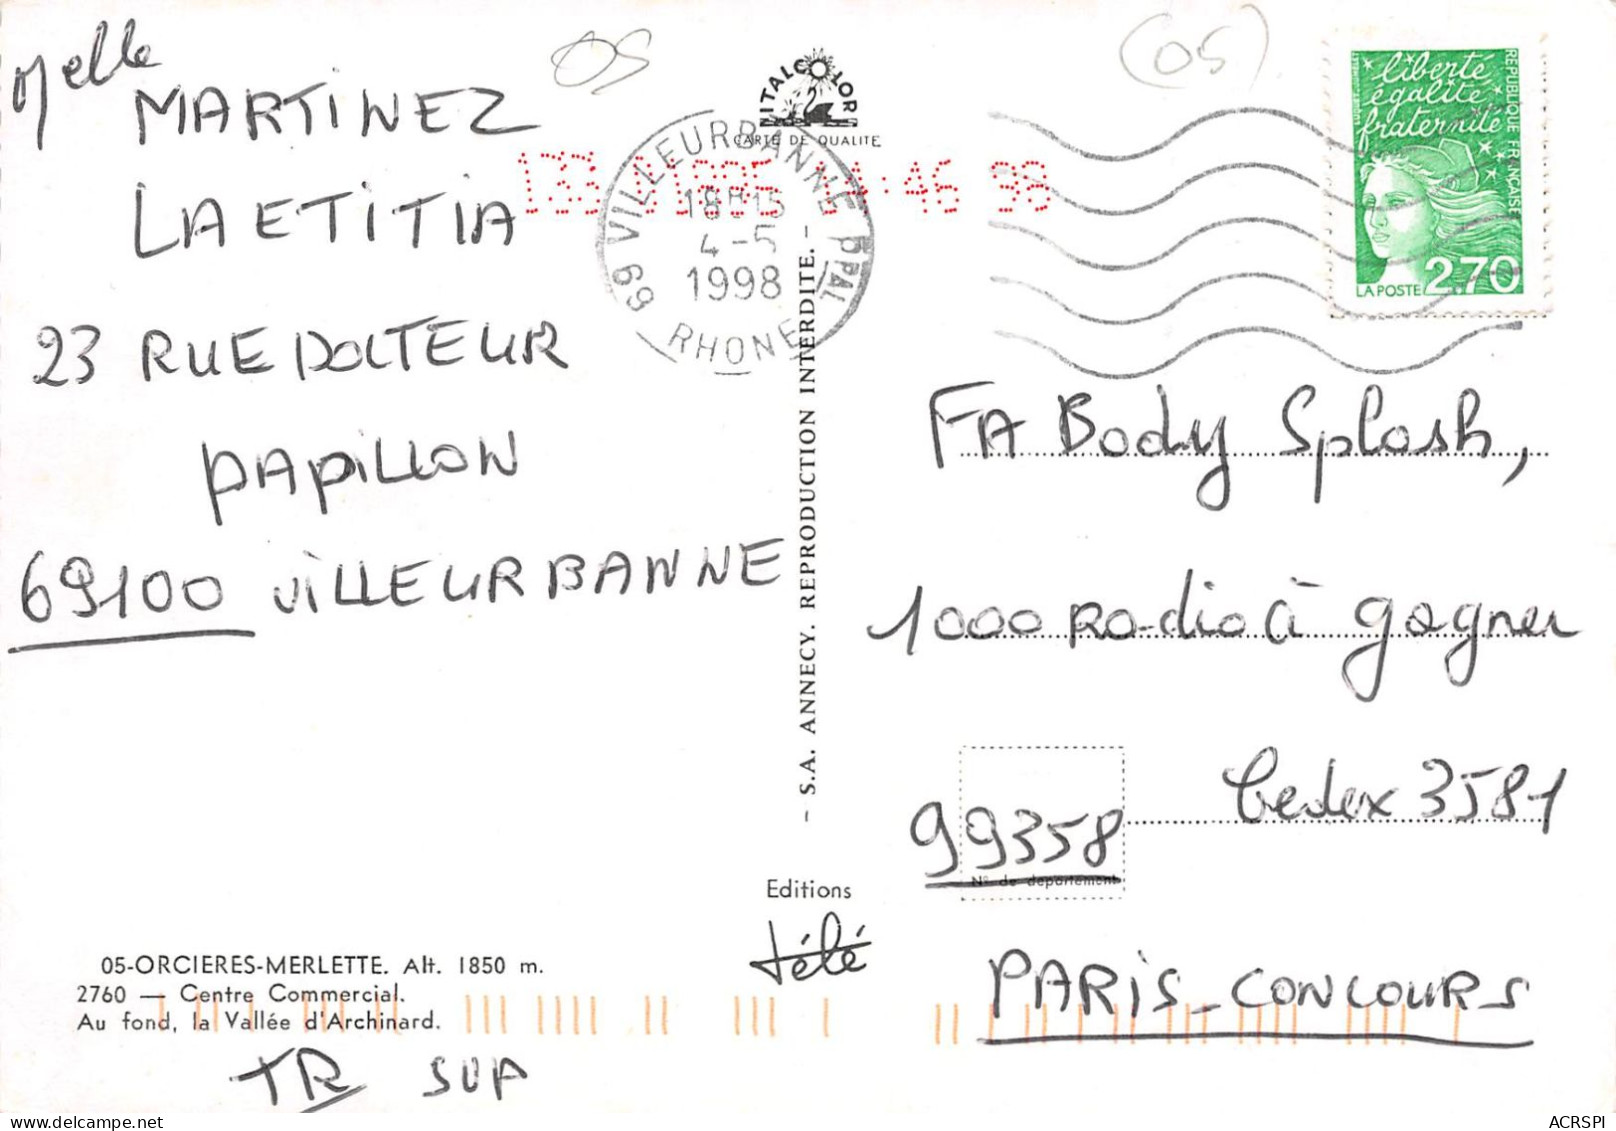 Melle
MARTINEZ
LAETITIA
23 RUE DOCTEUR
PAPILLON
69100 VILLEURBANNE
05
(05)
ITALCOLOR
CARTE DE QUALITE
04:46 98
69 VILLEURBANNE PPAL
18H15
4-5
1998
RHONE
liberté
égalité
fraternité
REPUBLIQUE FRANÇAISE
LA POSTE 2,70
FA Body Splash,
1000 Radio à gagner
Cedex 3581
99358
N° de département
PARIS-CONCOURS
- S.A. ANNECY. REPRODUCTION INTERDITE. -
Editions
télé
05-ORCIERES-MERLETTE. Alt. 1850 m.
2760 — Centre Commercial.
Au fond, la Vallée d'Archinard.
TR SUP
ACRSPI